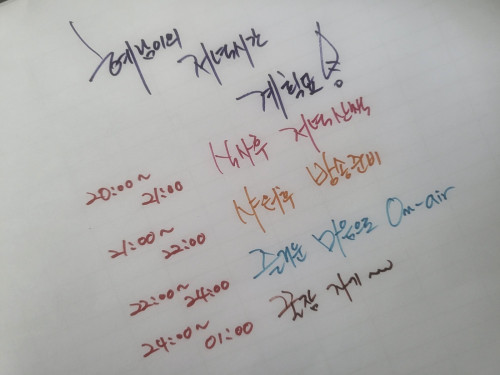 혜림이의 저녁시간
계획표
20:00~21:00 식사후 저녁산책
21:00~22:00 샤워후 방송준비
22:00~24:00 즐거운 마음으로 On-air
24:00~01:00 꿀잠 자기~~